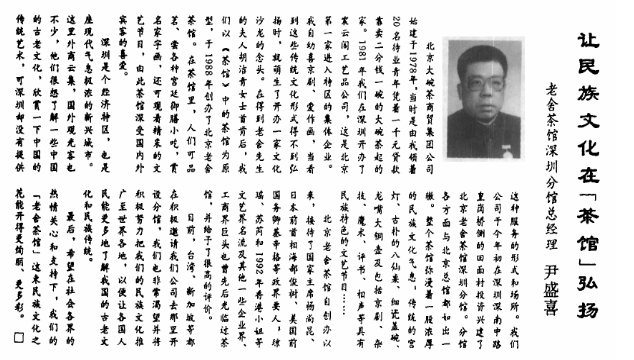 让民族文化在「茶馆」弘扬
老舍茶馆深圳分馆总经理 尹盛喜
北京大碗茶商贸集团公司
始建于1978年。当时是由我领着
20名待业青年凭着一千元贷款
靠卖二分钱一碗的大碗茶起的
家。1981年我们在深圳开办了
裳云阁工艺品公司，这是北京
第一家进入特区的集体企业。
我自幼喜京剧，爱作画，当看
到这些传统文化形式得不到弘
扬时，就萌生了开办一家文化
沙龙的念头。在得到老舍先生
的夫人胡洁青女士首肯后，我
们以《茶馆》中的茶馆为原
型，于1988年创办了北京老舍
茶馆。在茶馆里，人们可品
茗、尝各种宫廷御膳小吃，赏
名家字画，还可观看精采的文
艺节目，由此茶馆深受国内外
宾客的喜爱。
深圳是个经济特区，也是
座现代气息极浓的新兴城市。
这里外商云集，国外观光客也
不少，他们很想了解一些中国
的古老文化，欣赏一下中国的
传统艺术，可深圳却没有提供
这种服务的形式和场所。我们
公司于今年初在深圳深南中路
皇岗桥侧的田面村投资兴建了
北京老舍茶馆深圳分馆。分馆
各方面与北京总馆都如出一
辙。整个茶馆弥漫着一股浓厚
的民族文化气息，传统的宫
灯、古朴的八仙桌、细瓷盖碗、
龙嘴大铜壶及包括京剧、杂
技、魔术、评书、相声等具有
民族特色的文艺节目……
北京老舍茶馆自创办以
来，接待了国家主席杨尚昆、
日本前首相海部俊树、美国前
国务卿基辛格等政界要人，琼
瑶、苏芮和1992年香港小姐等
文艺界名流及其他一些企业界、
工商界巨头也曾先后光临过茶
馆，并给予了很高的评价。
目前，台湾、新加坡等都
在积极邀请我们公司去那里开
设分馆，我们也非常渴望并将
积极努力把我们的民族文化推
广至世界各地，以便让各国人
民能更多地了解我国的古老文
化和民族传统。
最后，希望在社会各界的
热情关心和支持下，我们的
「老舍茶馆」这束民族文化之
花能开得更绚丽、更多彩。□